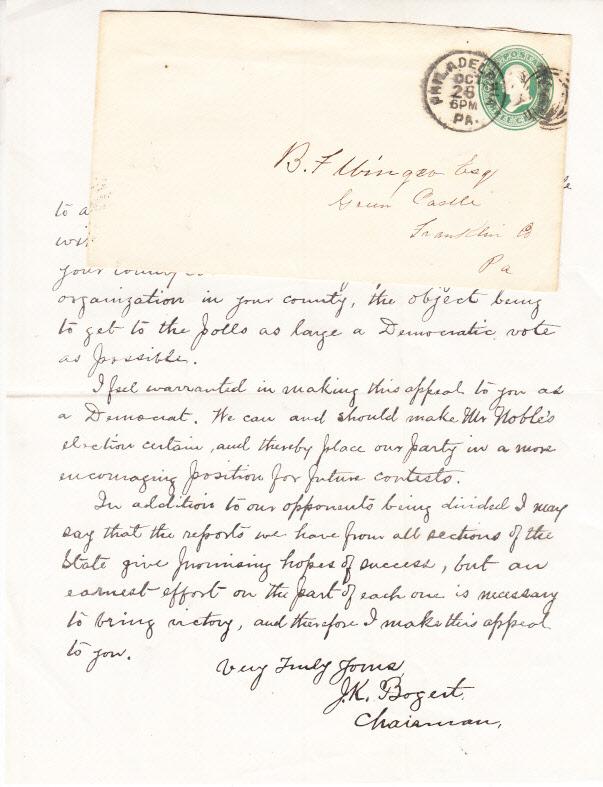 PHILADELPHIA
OCT
26
6PM
PA.
U.S. POSTAGE
THREE CENTS
B. F. Winger Esq
Green Castle
Franklin Co
Pa
to a
wi
your county
organization in your county, the object being
to get to the polls as large a Democratic vote
as possible.
I feel warranted in making this appeal to you as
a Democrat. We can and should make Mr Noble's
election certain, and thereby place our party in a more
encouraging position for future contests.
In addition to our opponents being divided I may
say that the reports we have from all sections of the
State give promising hopes of success, but an
earnest effort on the part of each one is necessary
to bring victory, and therefore I make this appeal
to you.
Very Truly Yours,
J.K. Bogert.
Chairman.